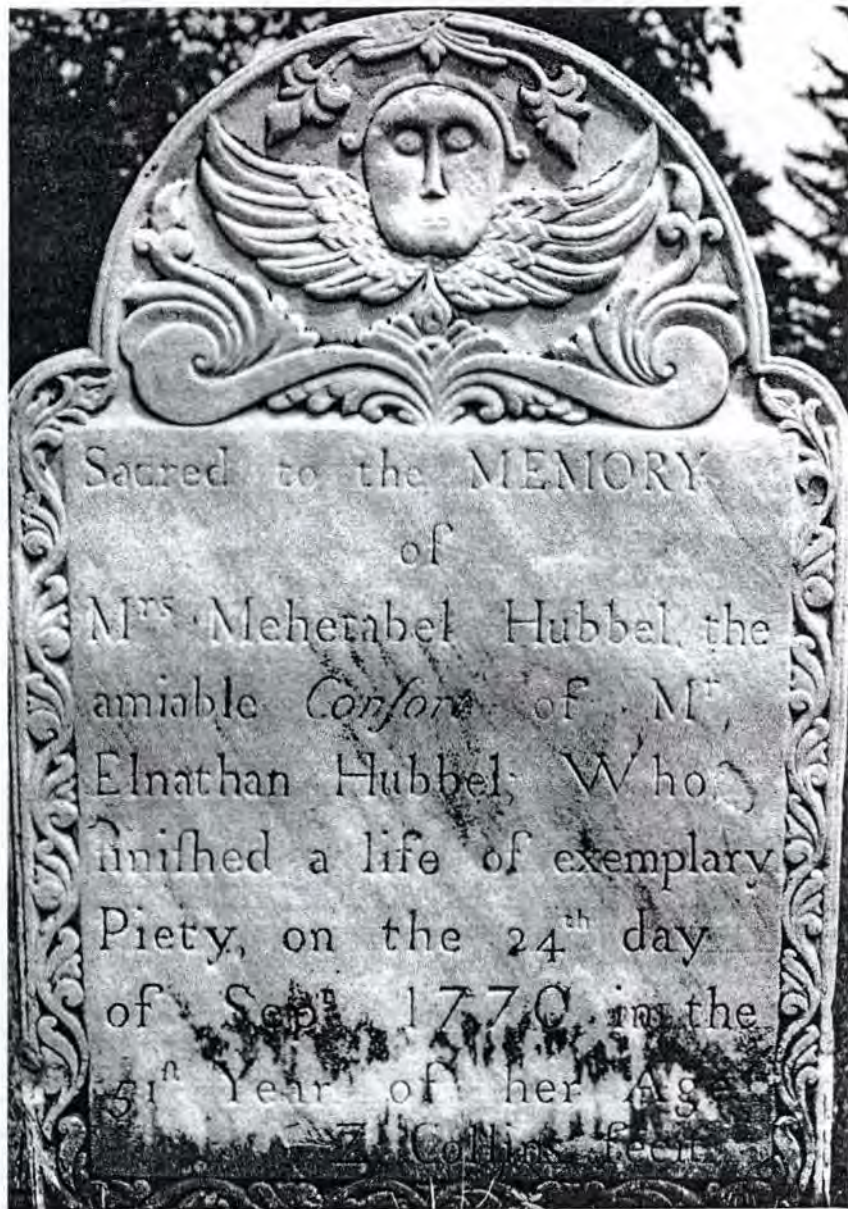 Sacred to the MEMORY
of
Mrs Mehetabel Hubbel, the
amiable Conſort of Mr,
Elnathan Hubbel; Who,
finiſhed a life of exemplary
Piety, on the 24th day
of Sept 1770 in the
51st Year of her Age
Z Collins fecit